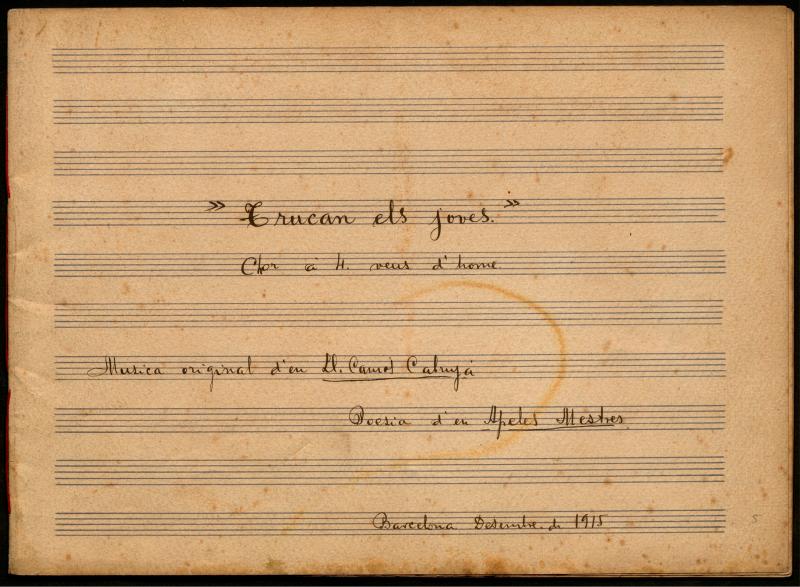 » Trucan els joves. »
Chor à 4. veus d'home.
Musica original d'en Ll. Camós Cabruja
Poesia d'en Apeles Mestres
Barcelona Desembre de 1915
5